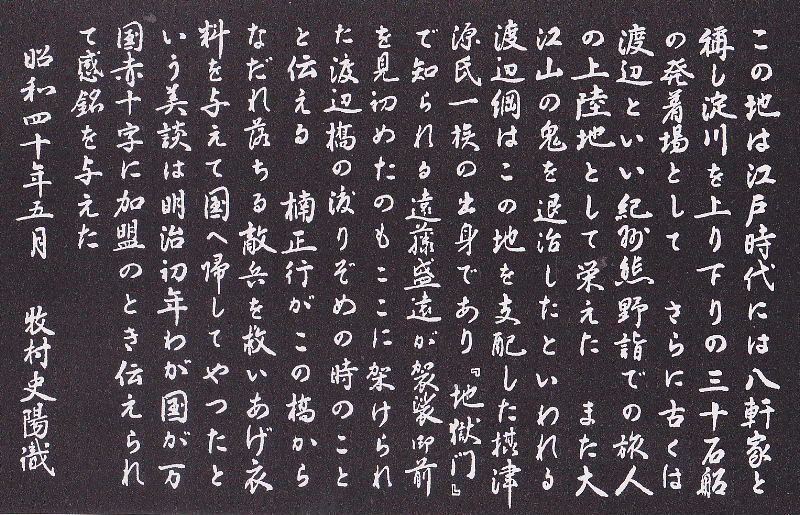 この地は江戸時代には八軒家と
稱し淀川を上り下りの三十石船
の発着場として　さらに古くは
渡辺といい紀州熊野詣での旅人
の上陸地として栄えた　また大
江山の鬼を退治したといわれる
渡辺綱はこの地を支配した摂津
源氏一族の出身であり『地獄門』
で知られる遠藤盛遠が袈裟御前
を見初めたのもここに架けられ
た渡辺橋の渡りぞめの時のこと
と伝える　楠正行がこの橋から
なだれ落ちる敵兵を救いあげ衣
料を与えて国へ帰してやつたと
いう美談は明治初年わが国が万
国赤十字に加盟のとき伝えられ
て感銘を与えた
昭和四十年五月　牧村史陽識